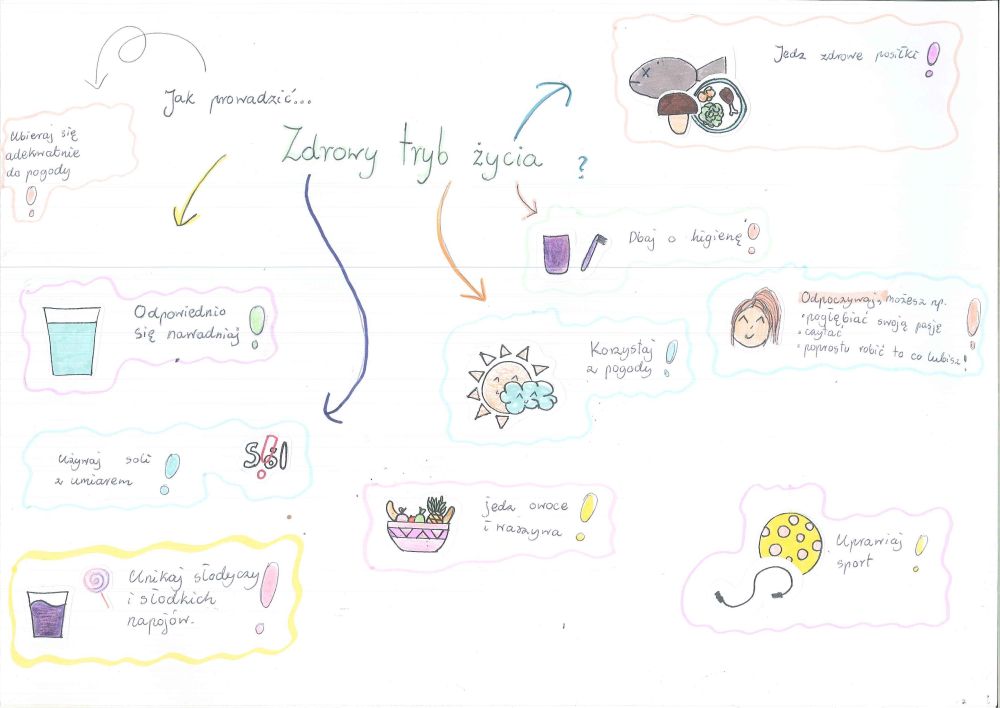 Jak prowadzić...
Zdrowy tryb życia ?
Ubieraj się
adekwatnie
do pogody
!
Jedz zdrowe posiłki !
Dbaj o higienę !
Odpowiednio
się nawadniaj !
Korzystaj
z pogody !
Odpoczywaj, możesz np.
• pogłębiać swoją pasję
• czytać
• poprostu robić to co lubisz! !
Używaj soli
z umiarem !
Sól
jedz owoce
i warzywa !
Uprawiaj
sport !
Unikaj słodyczy
i słodkich
napojów. !